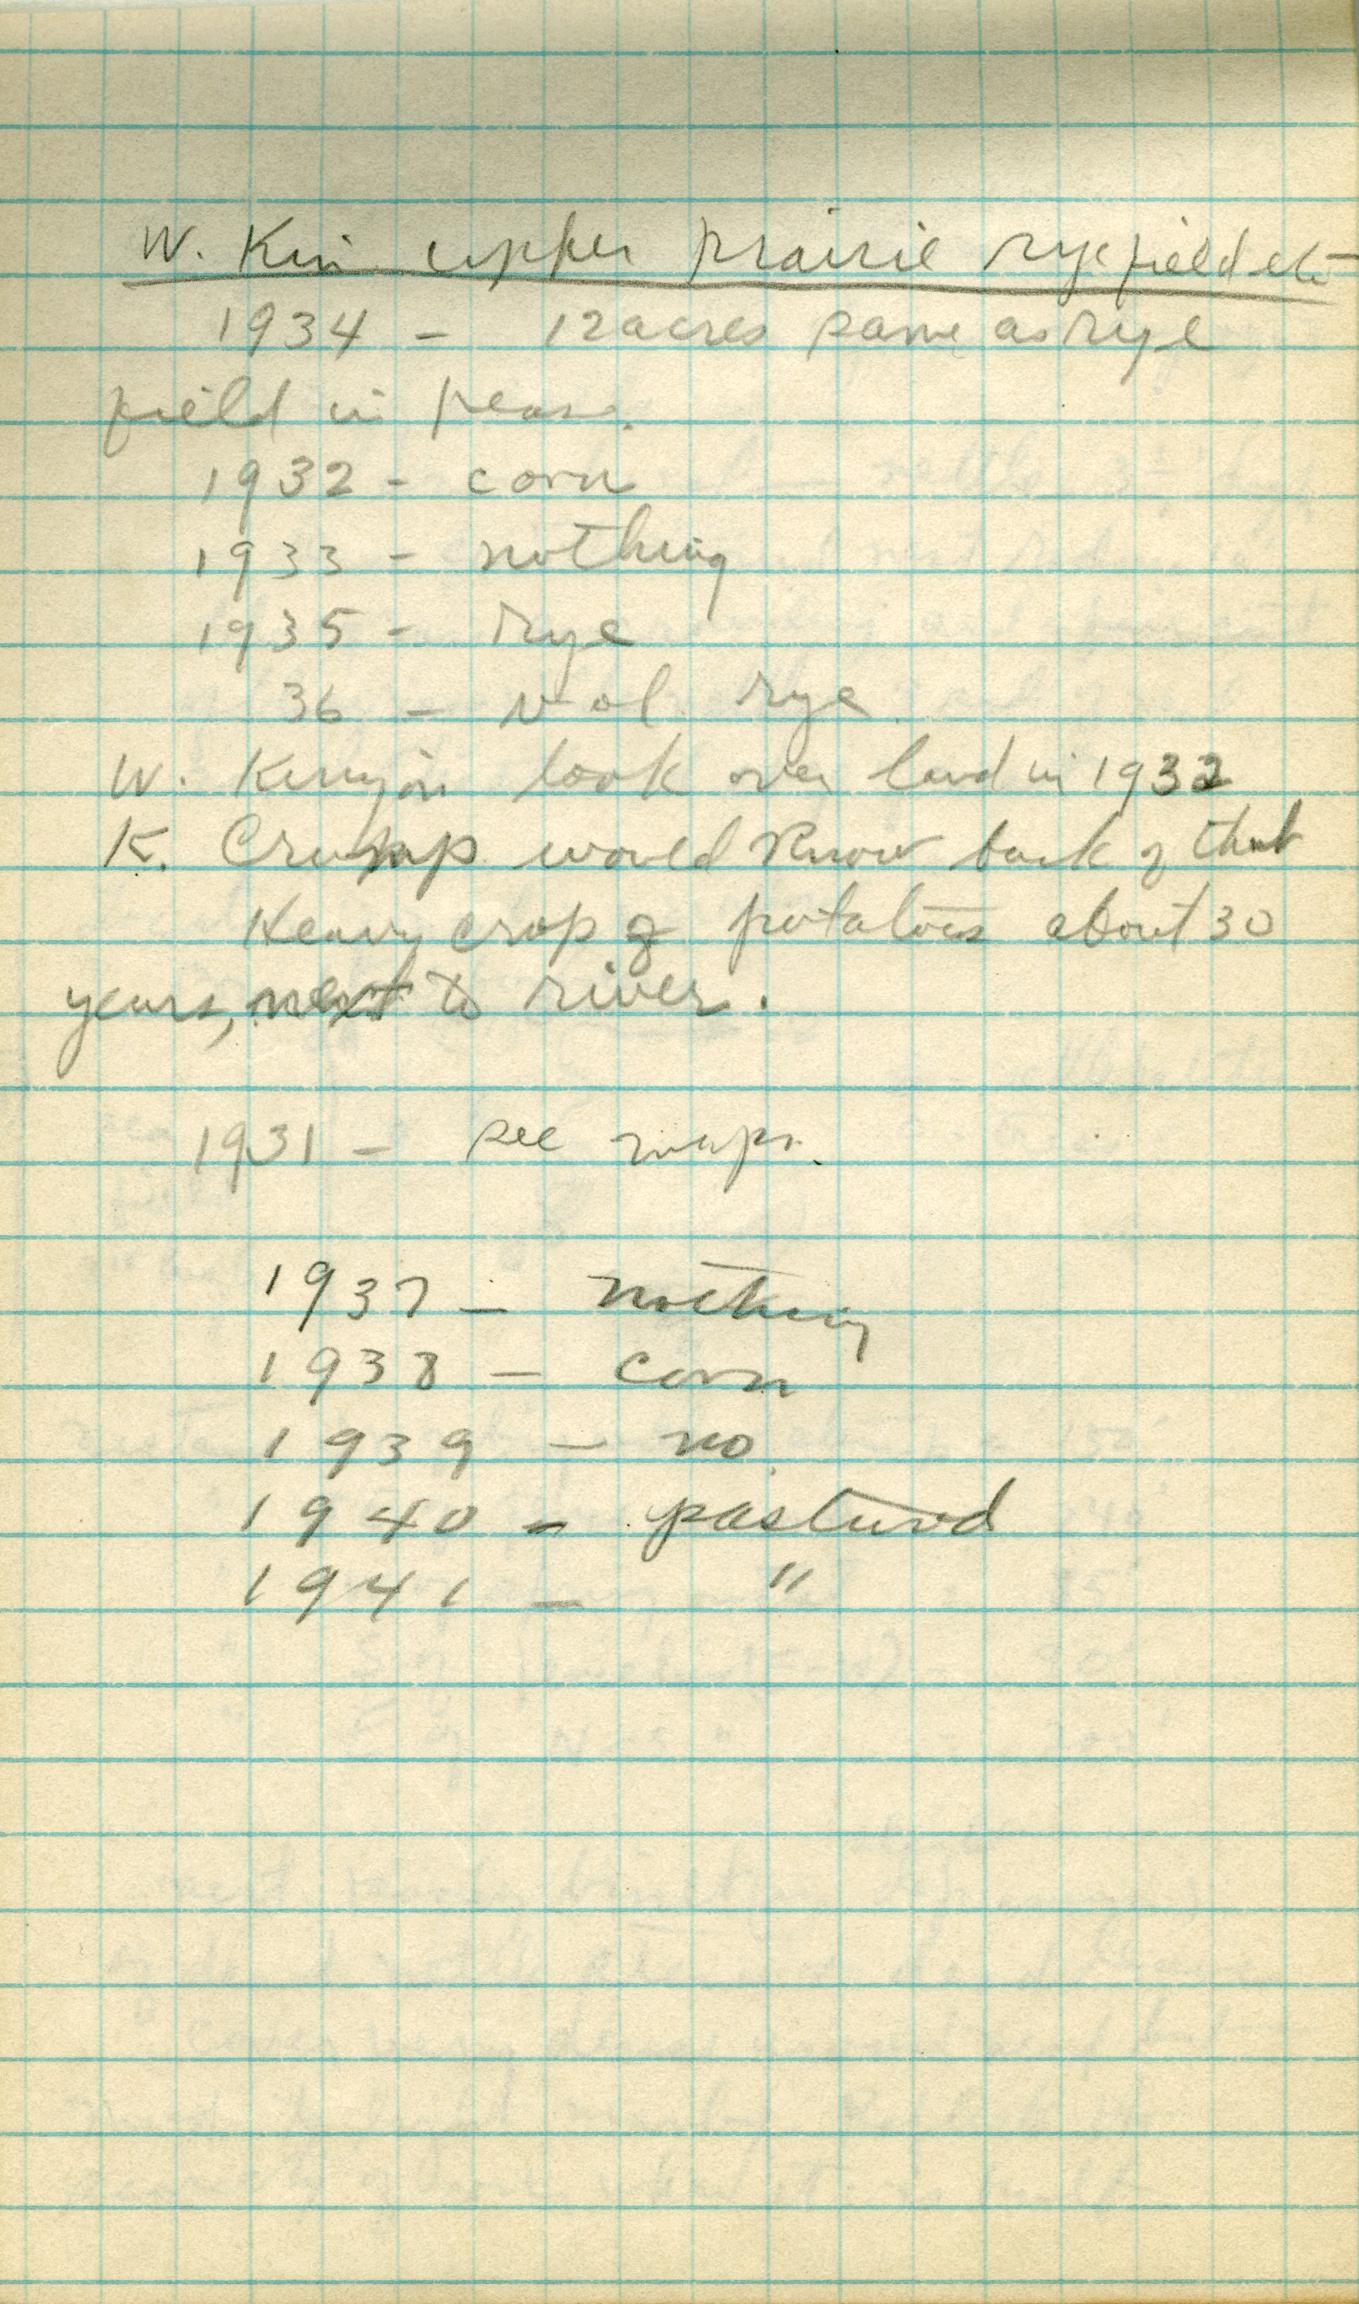 W. Kin. upper prairie rye field etc
1934 - 12 acres same as rye
field in peas.
1932 - corn
1933 - nothing
1935 - rye
36 - vol. rye.
W. Kenyon took over land in 1932
K. Crump would know back of that
Heavy crop of potatoes about 30
years, next to river.
1931 - see maps.
1937 - nothing
1938 - corn
1939 - no.
1940 - pastured
1941 - "